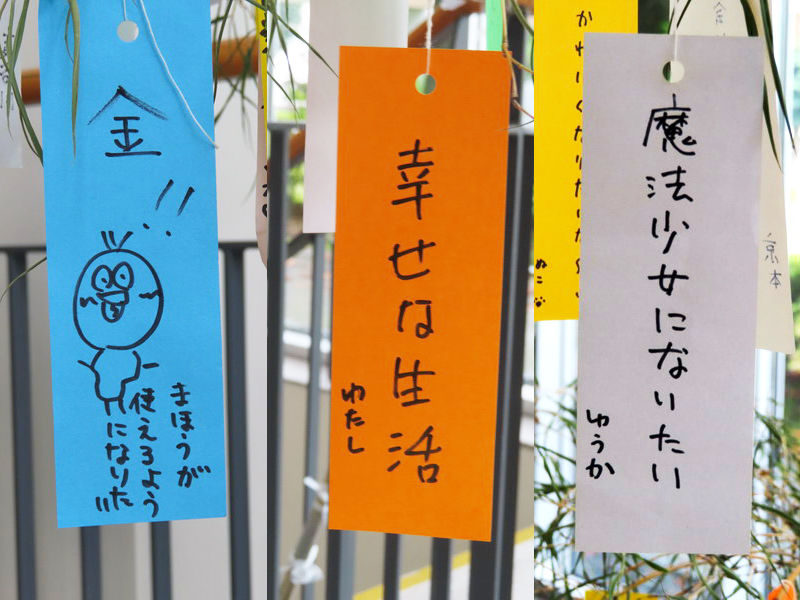 金
!!
まほうが
使えるよう
になりた
い
幸せな生活
わたし
かわいくなりたい
ぬこ
魔法少女になりたい
ゆうか
京本